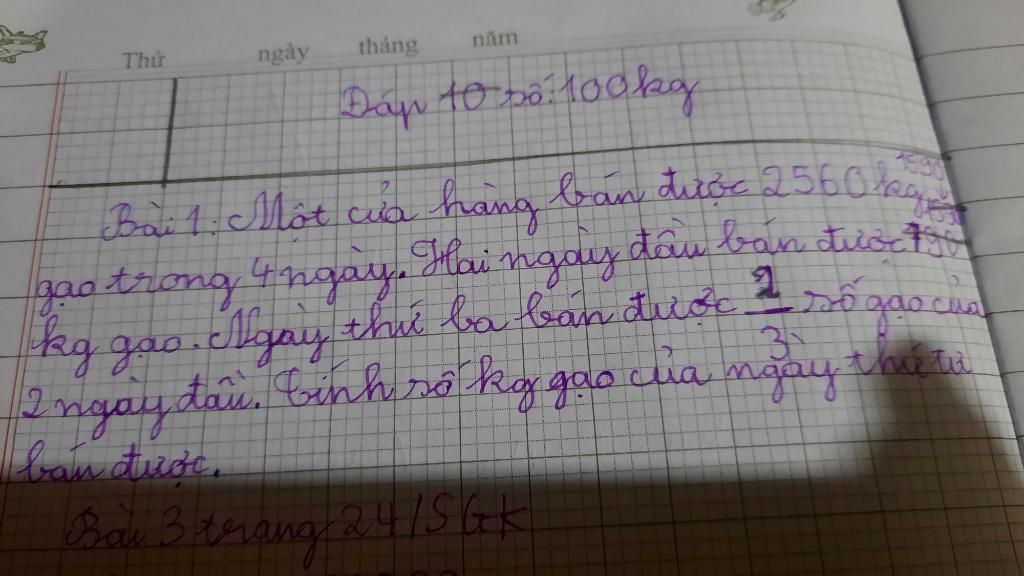 Thứ ngày tháng năm
Đáp số: 100kg
Bài 1: Một cửa hàng bán được 2560kg
gạo trong 4 ngày. Hai ngày đầu bán được
kg gạo. Ngày thứ ba bán được 1/3 số gạo của
2 ngày đầu. Tính số kg gạo của ngày thứ tư
bán được.
Bài 3 trang 24/SGK